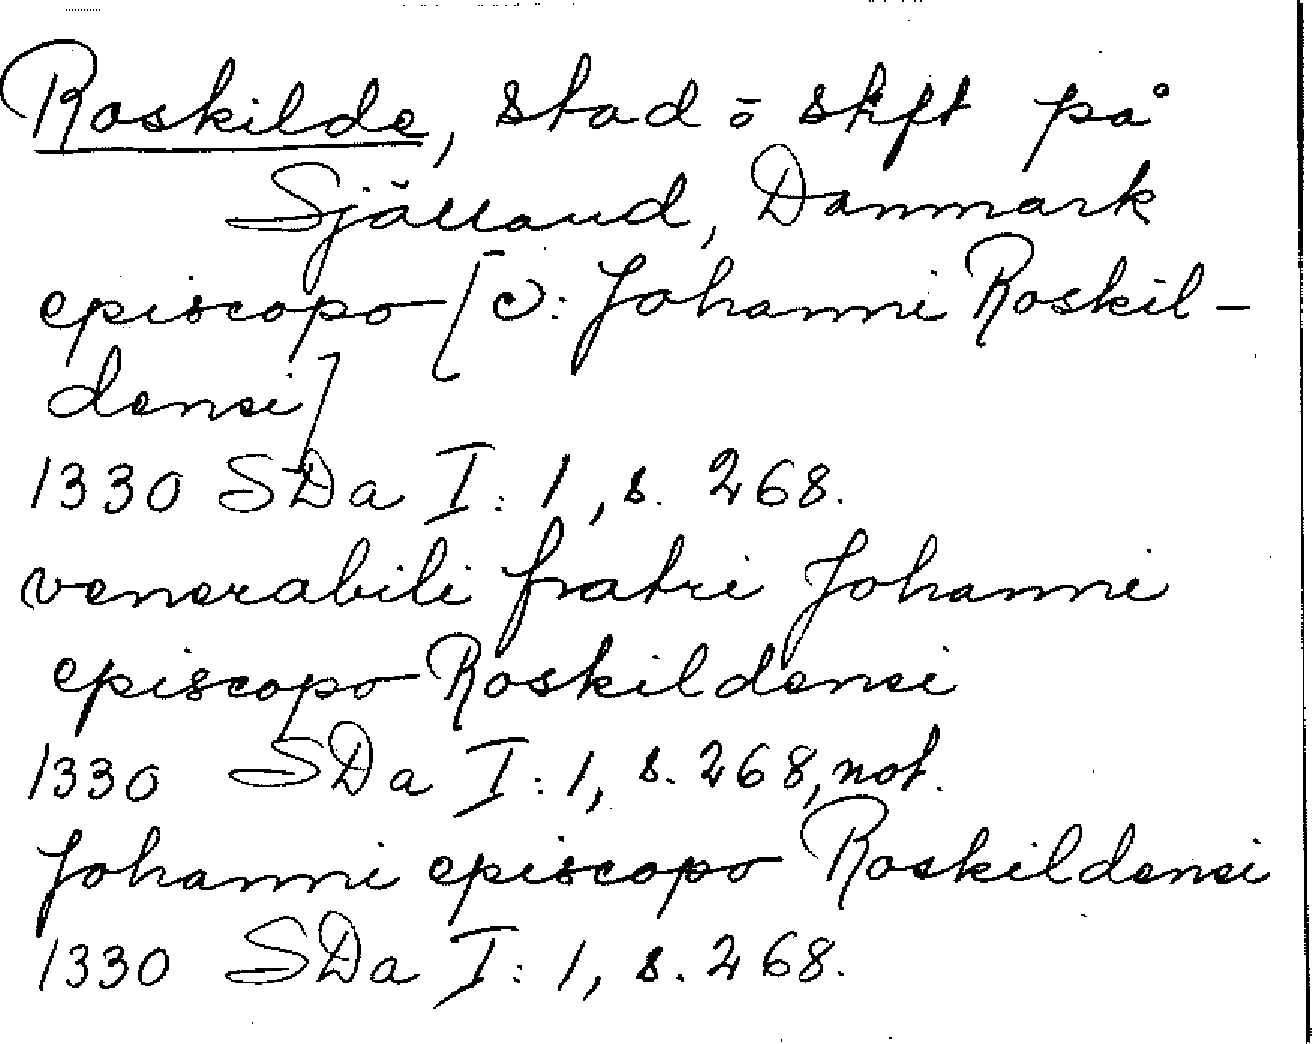 Roskilde, stad o stift på
Själland, Danmark
episcopo [ɔ: Johanni Roskil-
densi]
1330 SDa I: 1, s. 268.
venerabili fratri Johanni
episcopo Roskildensi
1330 SDa I: 1, s. 268, not.
Johanni episcopo Roskildensi
1330 SDa I: 1, s. 268.